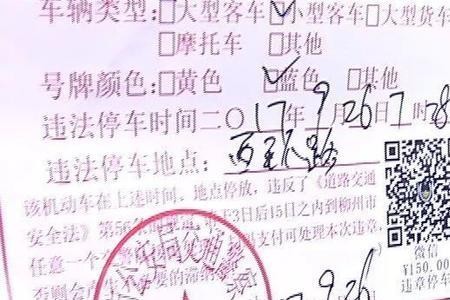 车辆类型:□大型客车☑小型客车□大型货车
□摩托车 □其他
号牌颜色:□黄色 ☑蓝色 □其他
违法停车时间二〇17年9月26日7时28
违法停车地点:
该机动车在上述时间、地点停放,违反了《道路交通
安全法》第56条 3日后15日之内到柳州市
任意一个 支付可处理本次违章,
否则会产生不必要的滞纳
9.26
微信
¥150.00
违章停车